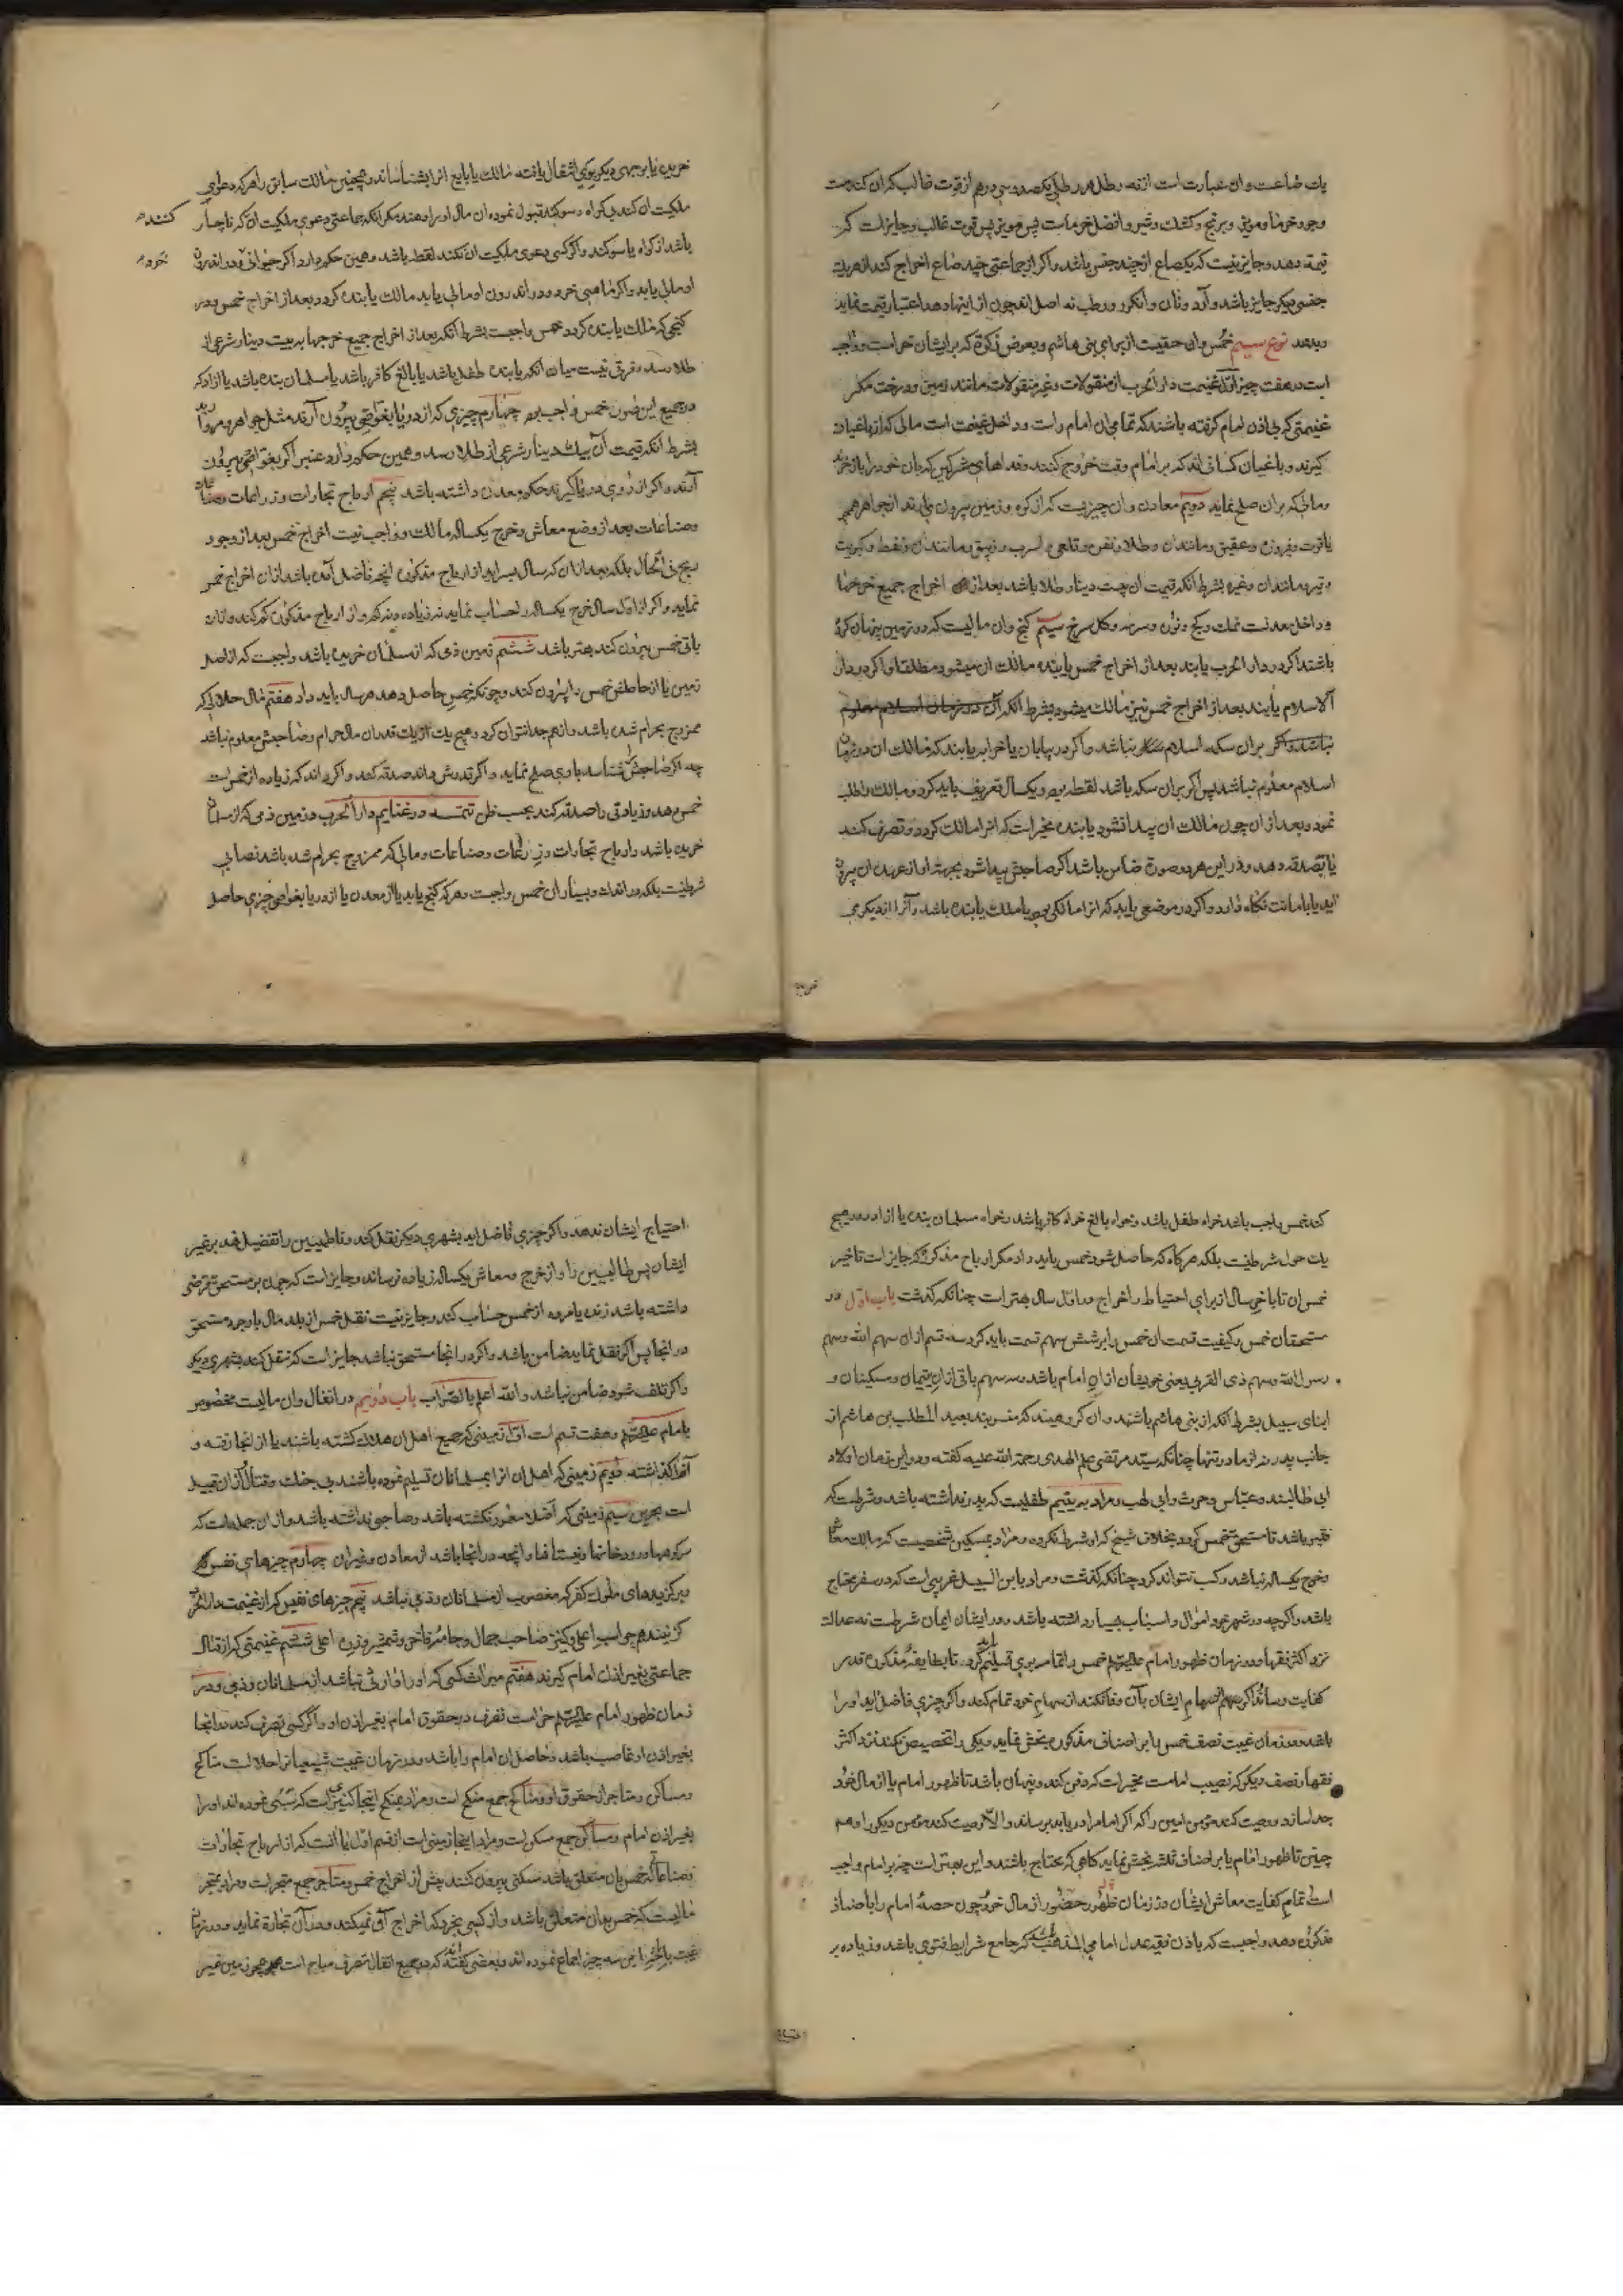 یك صاعست و ان عبارت است از نه رطل هر رطلی یکصد و سی درهم از قوت غالب که ان کندمست
و جو و خرما و مویز و برنج و کشك و شیر و افضل خرماست پس مویز پس قوت غالب و جایز است که
قیمة دهد و جایز نیست که یکصاع از چند جنس باشد و اکر از جماعتی چند صاع اخراج کند از هریك
جنسی دیکر جایز باشد و آرد و نان و انکور و رطب نه اصل اند چون از اینها دهد اعتبار قیمت نماید
و بدهد نوع سیم خمس و ان حقیست از برای بنی هاشم و بعوض زکوة که بر ایشان حرامست و واجب
است در هفت چیز اوّل غنیمت دار الحرب از منقولات و غیر منقولات مانند زمین و درخت مکر
غنیمتی که بی اذن امام کرفته باشند که تمامی ان امام راست و داخل غنیمت است مالی که از باغیان
کیرند و باغیان کسانی اند که بر امام وقت خروج کنند و فداهای مشرکین که بان خود را باز خرند
و مالی که بر ان صلح نماید دویّم معادن و ان چیزیست که از کوه و زمین بیرون می ارند از جواهر همچو
یاقوت و فیروزه و عقیق و مانند ان و طلا و نقره و قلعی و سرب و زیبق و مانند ان و نفط و کبریت
و قیر و مانند ان و غیره بشرط انکه قیمت ان بیست دینار طلا باشد بعد از اخراج جمیع خرجها
و داخل معدنست نمك و کچ و نوره و سرمه و کل سرخ سیّم کنج و ان مالیست که در زمین پنهان کرده
باشند اکر در دار الحرب یابند بعد از اخراج خمس یابنده مالك ان میشود مطلقا و اکر در دار
الاسلام یابند بعد از اخراج خمس نیز مالك میشود بشرط انکه
بران سکه اسلام نباشد و اکر در بیابان یا خرابه یابند که مالك ان در زمان
اسلام معلوم نباشد پس اکر بران سکه باشد لقطه بود و یکسال تعریف باید کرد و مالك را طلب
نمود و بعد از ان چون مالك ان پیدا نشود یابنده مخیر است که انرا مالك کردد و تصرف کند
یا تصدق دهد و در این هر دو صورة ضامن باشد اکر صاحبش پیدا شود بجهة او از عهده ان بیرون
اید یا بامانت نکاه دارد و اکر در موضعی یابد که انرا مالکی بود یا ملك یابنده باشد و آنرا از دیکری
خریده
خریده یا بوجهی دیکر بوی انتقال یافته مالك یا بایع انرا بشناساند و همچنین مالك سابق را هر که دعوی
ملکیت ان کند بی کواه و سوکند قبول نموده ان مال او را دهند مکر انکه جماعتی دعوی ملکیت ان کنند که ناچار
باشد از کواه یا سوکند و اکر کسی دعوی ملکیت ان نکند لقطه باشد و همین حکم دارد اکر حیوانی خرد و در اندرون
او مالی یابد و اکر ماهیی خرد و در اندرون او مالی یابد مالك یابنده کردد بعد از اخراج خمس و در
کنجی که مالك یابنده کردد خمس واجبست بشرط انکه بعد از اخراج جمیع خرجها به بیست دینار شرعی از
طلا رسد و فرقی نیست میان انکه یابنده طفل باشد یا بالغ کافر باشد یا مسلمان بنده باشد یا ازاد که
در جمیع این صور خمس واجب بود چهارم چیزی که از دریا بغواصی بیرون آرند مثل جواهر و مروارید
بشرط انکه قیمت آن بیك دینار شرعی از طلا رسد و همین حکم دارد عنبر اکر بغواصی بیرون
آرند و اکر از روی دریا کیرند حکم معدن داشته باشد پنجم ارباح تجارات و زراعات
و صناعات بعد از وضع معاش و خرج یکساله مالك و واجب نیست اخراج خمس بعد از وجود
ربح فی الحال بلکه بعد از ان که سال بسر اید از ارباح مذکوره انچه فاضل آمده باشد از ان اخراج خمس
نماید و اکر از اوّل سال خرج یکساله را حساب نماید نه زیاده و نه کم و از ارباح مذکوره کم کند و از ان
باقی خمس بیرون کند بهتر باشد ششم زمین ذمی که از مسلمان خریده باشد واجبست که از اصل
زمین یا از حاصلش خمس را بیرون کند و چونکه خمس حاصل دهد هر سال باید داد هفتم مال حلالی که
ممزوج بحرام شده باشد و از هم جدا نتوان کرد و هیچ یك از یك قدر ان مال حرام و صاحبش معلوم نباشد
چه اکر صاحبش را شناسد باوی صلح نماید و اکر قدرش داند صدقه کند و اکر داند که زیاده از خمس است
خمس دهد و زیادتی را صدقه کند بحسب ظن تتمــه در غنایم دار الحرب و زمین ذمی که از مسلمان
خریده باشد و ارباح تجارات و زراعات و صناعات و مالی که ممزوج بحرام شده باشد نصابی
شرط نیست بلکه در اندك و بسیار ان خمس واجبست و هر که کنج یابد یا از معدن یا از دریا بغواصی چیزی حاصل
کند خمس واجب باشد خواه طفل باشد و خواه بالغ خواه کافر باشد و خواه مسلمان بنده یا ازاد و در هیچ
یك حول شرط نیست بلکه هرکاه که حاصل شود خمس باید داد مکر ارباح مذکوره که جایز است تاخیر
خمس ان تا باخر سال از برای احتیاط و اخراج در اوّل سال بهتر است چنانکه کذشت باب اوّل در
مستحقان خمس و کیفیت قسمت ان خمس را بر شش سهم قسمت باید کرد سه قسم از ان سهم الله و سهم
رسول الله و سهم ذی القربی یعنی خویشان از ان امام باشد و سه سهم باقی از ان یتیمان و مسکینان و
ابنای سبیل بشرط انکه از بنی هاشم باشند و ان کروهیند که منسوبند بعبد المطلب بن هاشم از
جانب پدر نه از مادر تنها چنانکه سیّد مرتضی علم الهدی رحمة الله علیه کفته و در این زمان اولاد
ابی طالبند و عبّاس و حرث و ابی لهب و مراد به یتیم طفلیست که پدر نداشته باشد و شرطست که
فقیر باشد تا مستحق خمس کردد بخلاف شیخ که او شرط نکرده و مراد بمسکین شخصیست که مالك معاش
و خرج یکساله نباشد و کسب نتواند کرد چنانکه کذشت و مراد بابن السبیل غریبی است که در سفر محتاج
باشد و اکرچه در شهر خود اموال و اسباب بسیار داشته باشد و در ایشان ایمان شرطست نه عدالت
نزد اکثر فقها و در زمان ظهور امام علیه السلم خمس را تمام بوی تسلیم باید کرد تا بطایفه مذکوره قدر
کفایت رساند و اکر سهام ایشان بآن وفا نکند از سهام خود تمام کند و اکر چیزی فاضل اید او را
باشد و در زمان غیبت نصف خمس را بر اصناف مذکوره بخش نماید و یکی را تخصیص نکند نزد اکثر
فقها و نصف دیکر که نصیب امامست مخیر است که دفن کند و پنهان باشد تا ظهور امام یا از مال خود
جدا سازد و وصیت کند مؤمن امین را که اکر امام را دریابد برساند و الّا وصیت کند مؤمن دیکر را و هم
چنین تا ظهور امام یا بر اصناف ثلثه بخش نماید کاهی که محتاج باشند و این بهتر است چه بر امام واجب
است تمام کفایت معاش ایشان در زمان ظهور و حضور از مال خود و چون حصهٔ امام را باصناف
مذکوره دهد واجبست که باذن فقیه عدل امامی المذهب که جامع شرایط فتوی باشد و زیاده بر
احتیاج
احتیاج ایشان ندهد و اکر چیزی فاضل اید بشهری دیکر نقل کند و فاطمیین را تفضیل نهد بر غیر
ایشان پس طالبیین را و از خرج و معاش یکساله زیاده نرساند و جایز است که چون بر مستحق قرضی
داشته باشد زنده یا مرده از خمس حساب کند و جایز نیست نقل خمس از بلد مال با وجود مستحق
در انجا پس اکر نقل نماید ضامن باشد و اکر در انجا مستحق نباشد جایز است که نقل کند بشهری دیکر
و اکر تلف شود ضامن نباشد و الله اعلم بالصّواب باب دویم در انفال و ان مالیست مخصوص
بامام علیه السلم و هفت قسم است اوّل زمینی که جمیع اهل ان هلاك کشته باشند یا از انجا رفته و
آنرا کذاشته دویّم زمینی که اهل ان انرا بمسلمانان تسلیم نموده باشند بی جنك و قتال و از ان قبیل
است بحرین سیّم زمینی که اصلا معمور نکشته باشد و صاحبی نداشته باشد و از ان جمله است که
سر کوهها و رودخانها و نیستانها و انچه در انجا باشد از معادن و غیر ان چهارم چیزهای نفیس
و برکزیدهای ملوك کفر که مغصوب از مسلمانان و ذمی نباشد پنجم چیزهای نفیس که از غنیمت دار الحرب
کزینند همچو اسب اعلی و کنیز صاحب جمال و جامه فاخر و شمشیر و زره اعلی ششم غنیمتی که از قتال
جماعتی بغیر اذن امام کیرند هفتم میراث کسی که او را وارثی نباشد از مسلمانان و ذمی و در
زمان ظهور امام علیه السلم حرامست تصرف در حقوق امام بغیر اذن او و اکر کسی تصرف کند در انجا
بغیر اذن او غاصب باشد و حاصل ان امام را باشد و در زمان غیبت شیعیانرا حلالست مناکح
و مساکن و متاجر از حقوق او و مناکح جمع منکح است و مراد بمنکح اینجا کنیزیست که سبی نموده اند او را
بغیر اذن امام و مساکن جمع مسکن است و مراد اینجا زمینی است از قسم اوّل یا انست که از ارباح تجارات
و صناعات که خمس بان متعلق باشد مسکنی بیرون کنند پیش از اخراج خمس و متاجر جمع متجر است و مراد بمتجر
مالیست که خمس بدان متعلق باشد و از کسی بخرد که اخراج آن نمیکند و در آن تجارة نماید و در زمان
غیبت با این سه چیز اجماع نموده اند و بعضی کفته اند که در جمیع انفال تصرف مباح است همچو زمین غیر